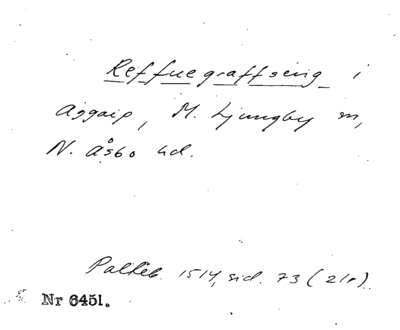 Reffuegraffseng i
aggarp, M. Ljungby sn,
N. Åsbo hd.
Palteb. 1514, sid. 73 (21r).
Nr 6451.